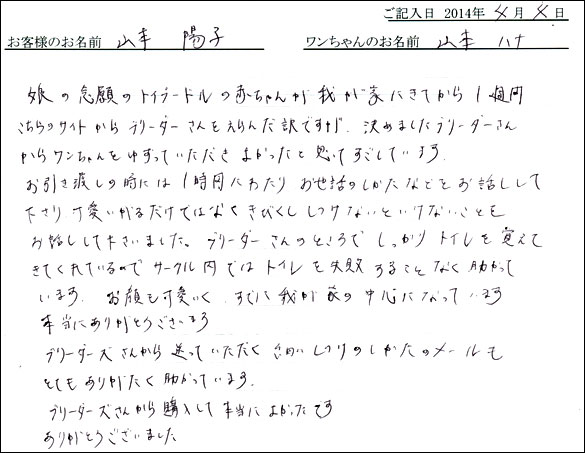 ご記入日 2014年 4月 4日
お客様のお名前 山本 陽子 ワンちゃんのお名前 山本 ハナ
娘の念願のトイプードルの赤ちゃんが我が家にきてから1週間
こちらのサイトからブリーダーさんをえらんだ訳ですが、決めましたブリーダーさん
からワンちゃんをゆずっていただきよかったと思ってすごしています。
お引き渡しの時には1時間にわたりお世話のしかたなどをお話しして
下さり可愛いがるだけではなくきびしくしつけないといけないことも
お話しして下さいました。ブリーダーさんのところでしっかりトイレを覚えて
きてくれているのでサークル内ではトイレを失敗することなく助かって
います。お顔も可愛いく すでに我が家の中心になっています
本当にありがとうございます
ブリーダーズさんから送っていただく しつけのしかたのメールも
とてもありがたく助かっています。
ブリーダーズさんから購入して本当によかったです
ありがとうございました